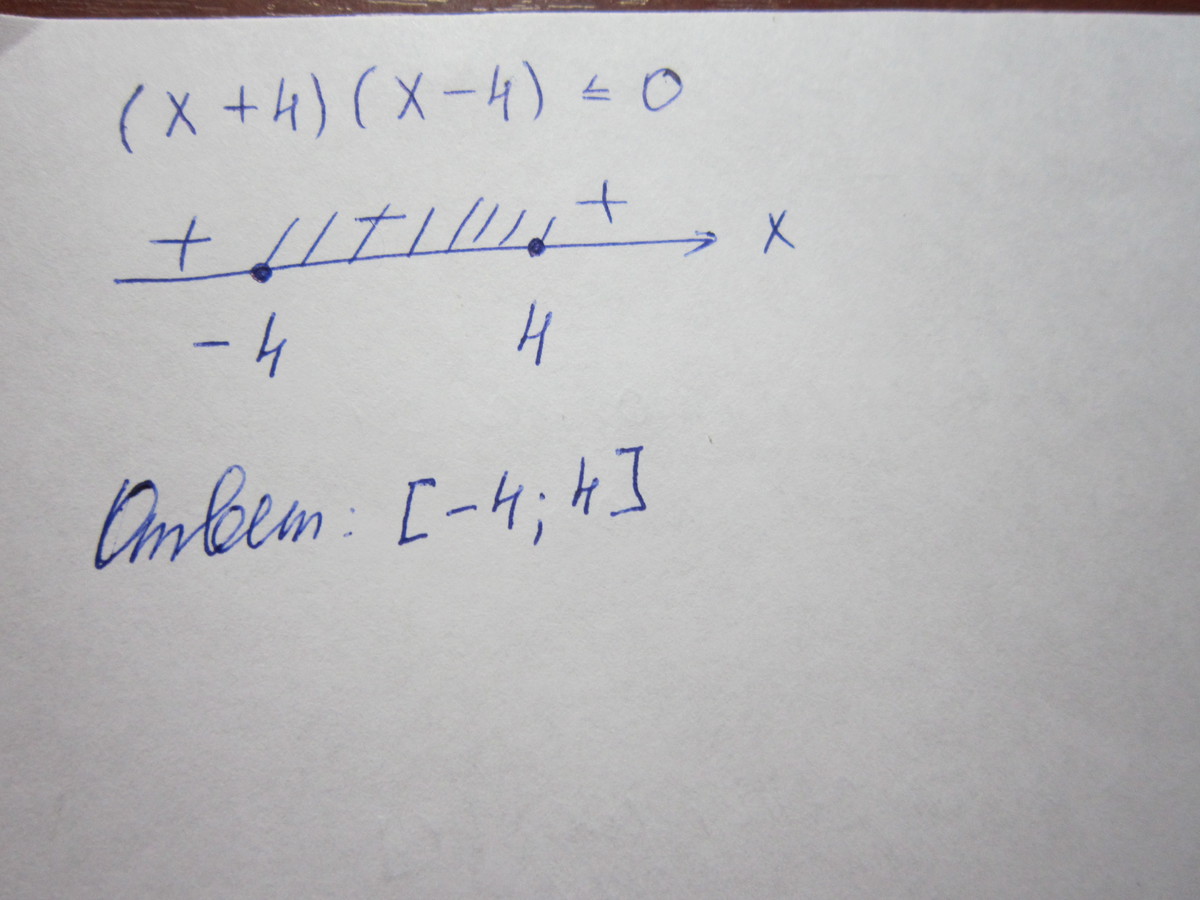 (x+4)(x-4) ≤ 0
+ - + x
-4 4
Ответ: [-4; 4]